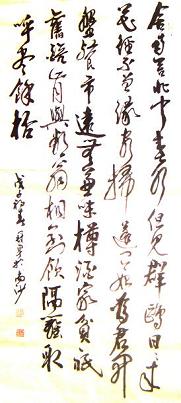 舍南舍北皆春水但見群鷗日日来
花徑不曾緣客掃蓬門今始為君開
盤飧市遠無兼味樽酒家貧祇
舊醅肯與鄰翁相對飲隔籬取
呼盡餘杯
戊子初春